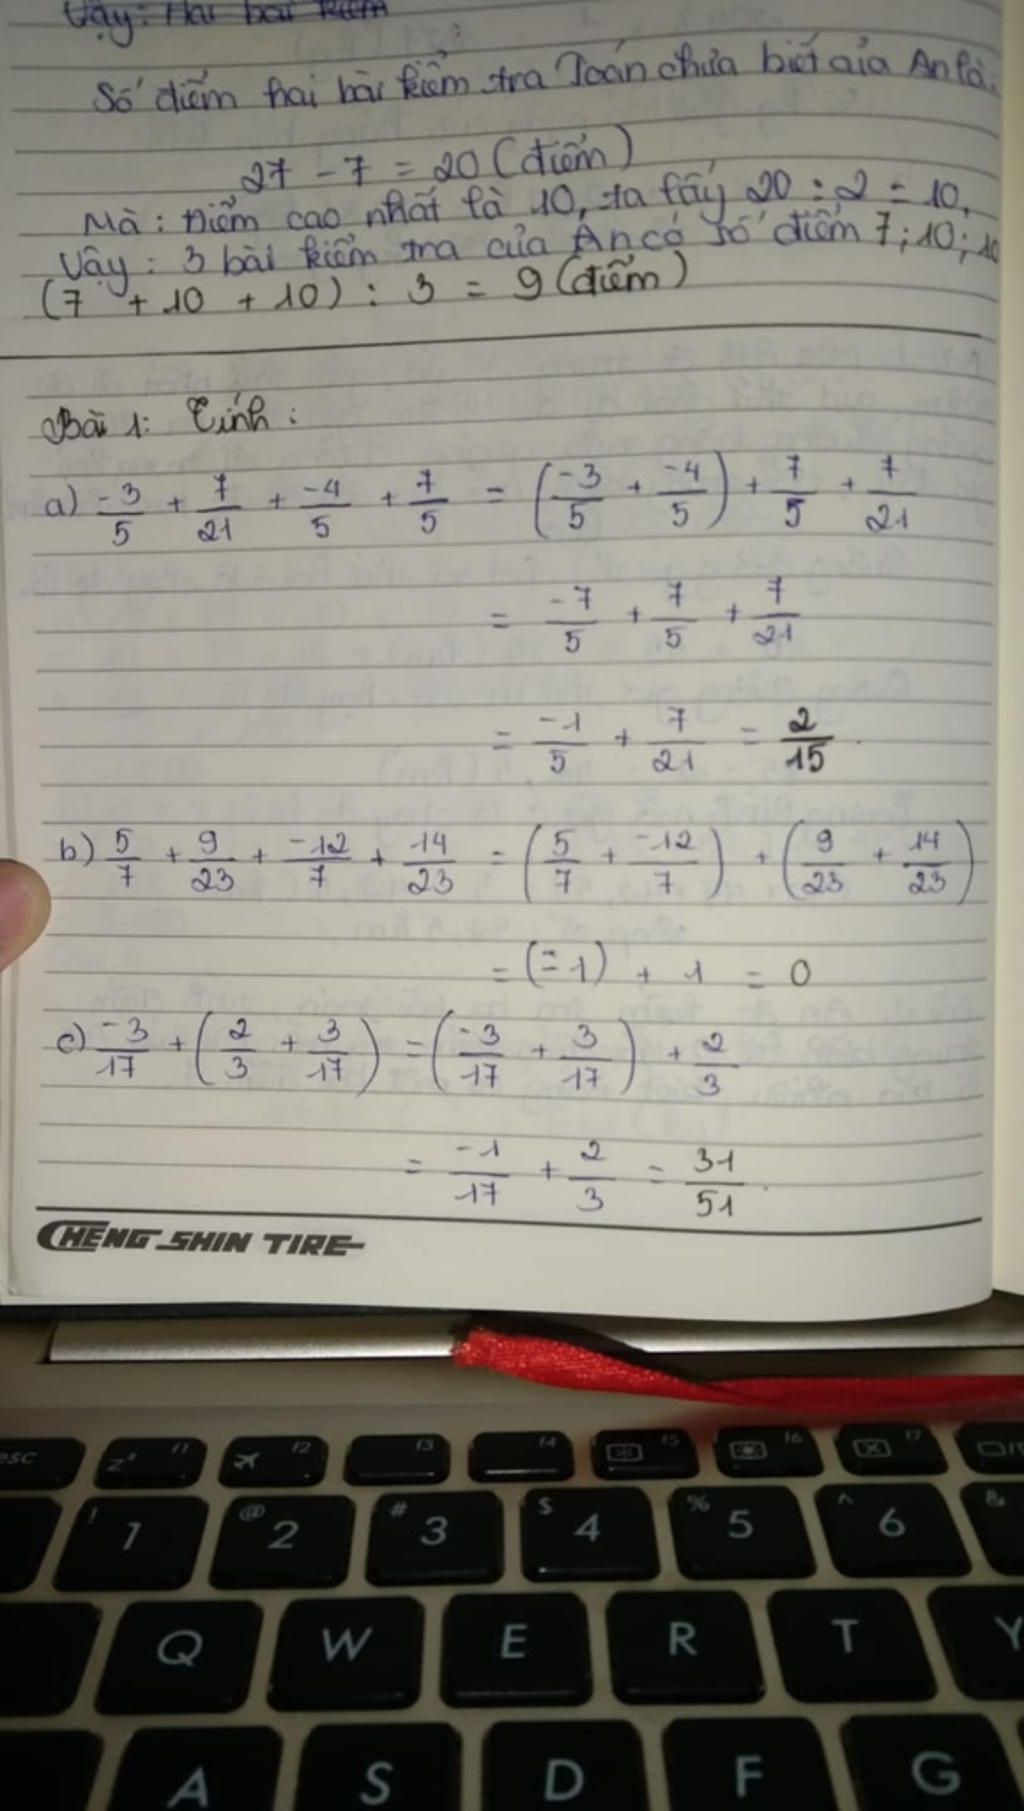 Vậy: Hai bài kiểm
Số điểm hai bài kiểm tra Toán chưa biết của An là:
27 - 7 = 20 (điểm)
Mà: Điểm cao nhất là 10, ta lấy 20 : 2 = 10.
Vậy: 3 bài kiểm tra của An có số điểm 7; 10; 10
(7 + 10 + 10) : 3 = 9 (điểm)
Bài 1: Tính:
a) -3/5 + 7/21 + -4/5 + 7/5 = (-3/5 + -4/5) + 7/5 + 7/21
= -7/5 + 7/5 + 7/21
= -1/5 + 7/21 = 2/15.
b) 5/7 + 9/23 + -12/7 + 14/23 = (5/7 + -12/7) + (9/23 + 14/23)
= (-1) + 1 = 0
c) -3/17 + (2/3 + 3/17) = (-3/17 + 3/17) + 2/3
= -1/17 + 2/3 = 31/51.
CHENG SHIN TIRE
esc zz f1 f2 f3 f4 f5 f6 f7
! 1 @ 2 # 3 $ 4 % 5 ^ 6 &
Q W E R T Y
A S D F G